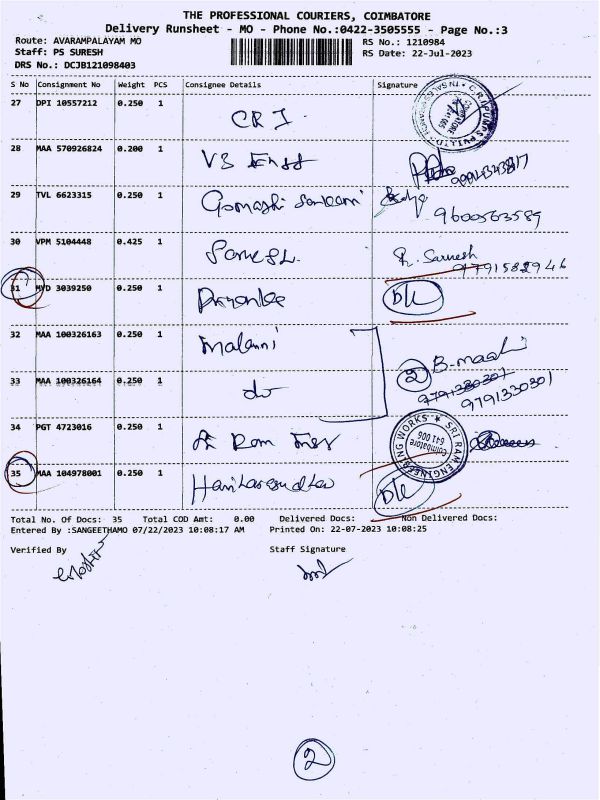 THE PROFESSIONAL COURIERS, COIMBATORE
Delivery Runsheet - MO - Phone No.:0422-3505555 - Page No.:3
Route: AVARAMPALAYAM MO
RS No.: 1210984
Staff: PS SURESH
RS Date: 22-Jul-2023
DRS No.: DCJB121098403
S No Consignment No Weight PCS Consignee Details Signature
27 DPI 10557212 0.250 1 CRI
28 MAA 570926824 0.200 1 VS
29 TVL 6623315 0.250 1 Gomathi
9600563589
30 VPM 5104448 0.425 1
R. Sarvesh
9791582946
31 MYD 3039250 0.250 1 Priyanka DK
32 MAA 100326163 0.250 1 Malarni
B-madhi
33 MAA 100326164 0.250 1 do 2
9791330301
34 PGT 4723016 0.250 1 Ram
SRI RAM ENGINEERING WORKS
Coimbatore
641 006
35 MAA 104978001 0.250 1 DK
Total No. Of Docs: 35 Total COD Amt: 0.00 Delivered Docs: Non Delivered Docs:
Entered By :SANGEETHAMO 07/22/2023 10:08:17 AM Printed On: 22-07-2023 10:08:25
Verified By Staff Signature
2